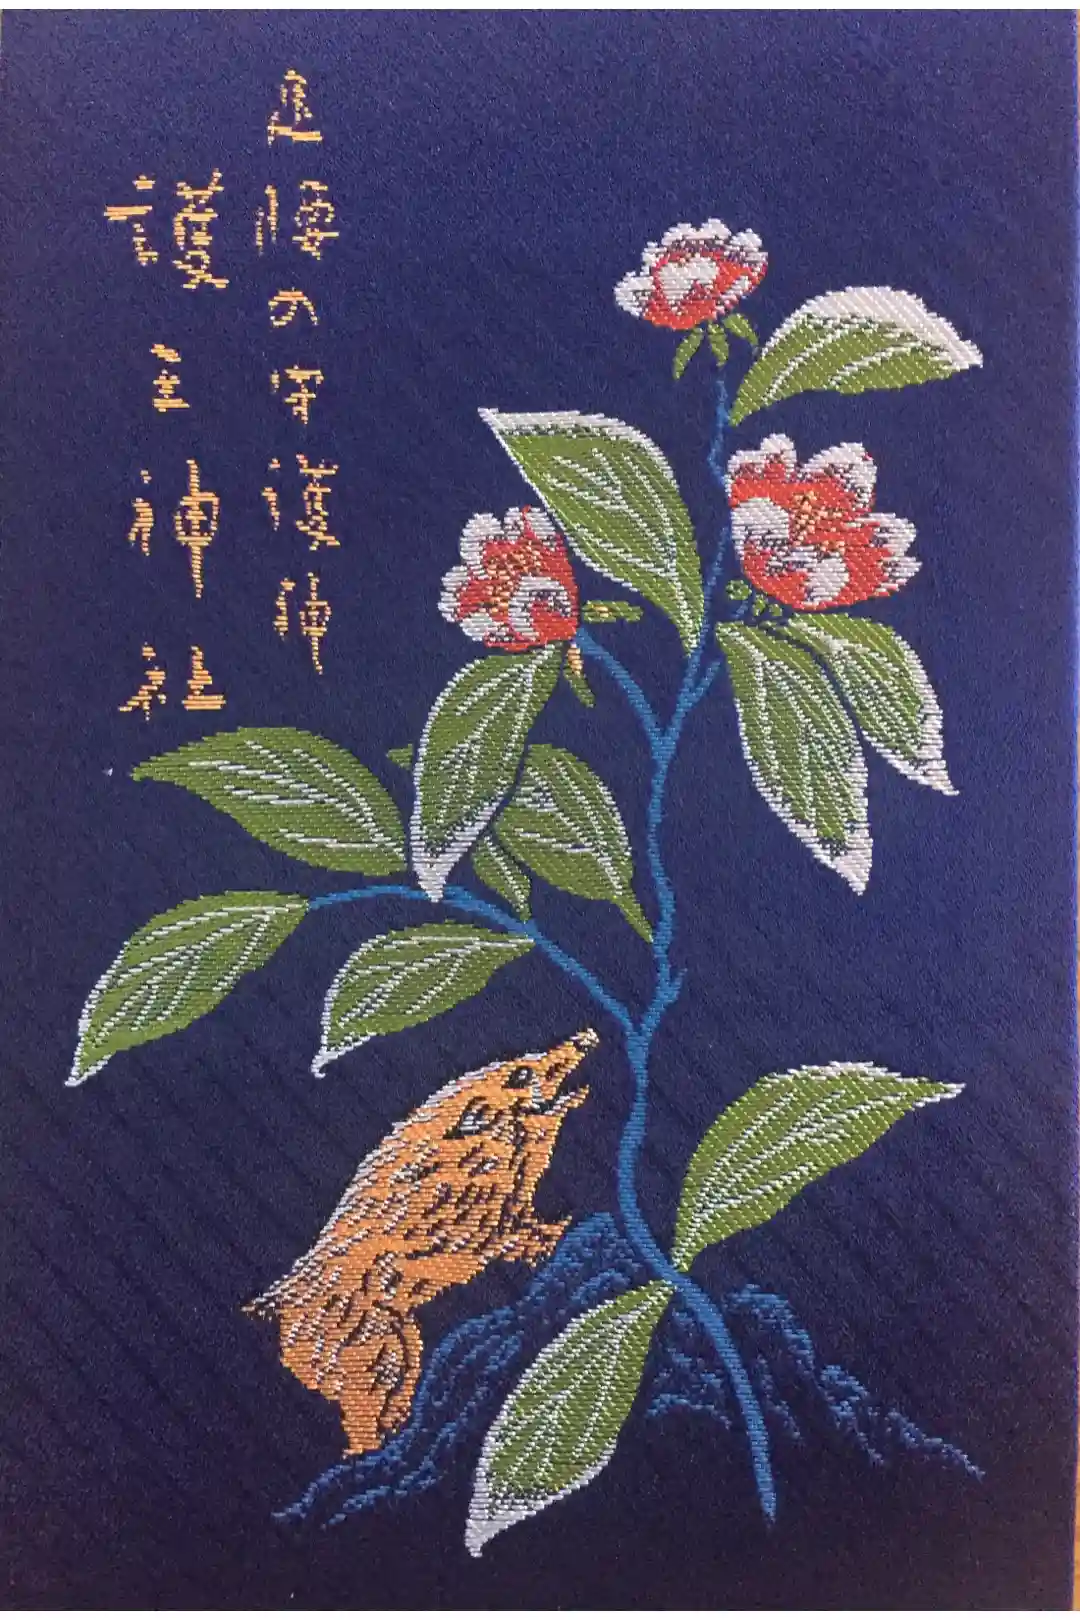 足腰の守護神
護王神社